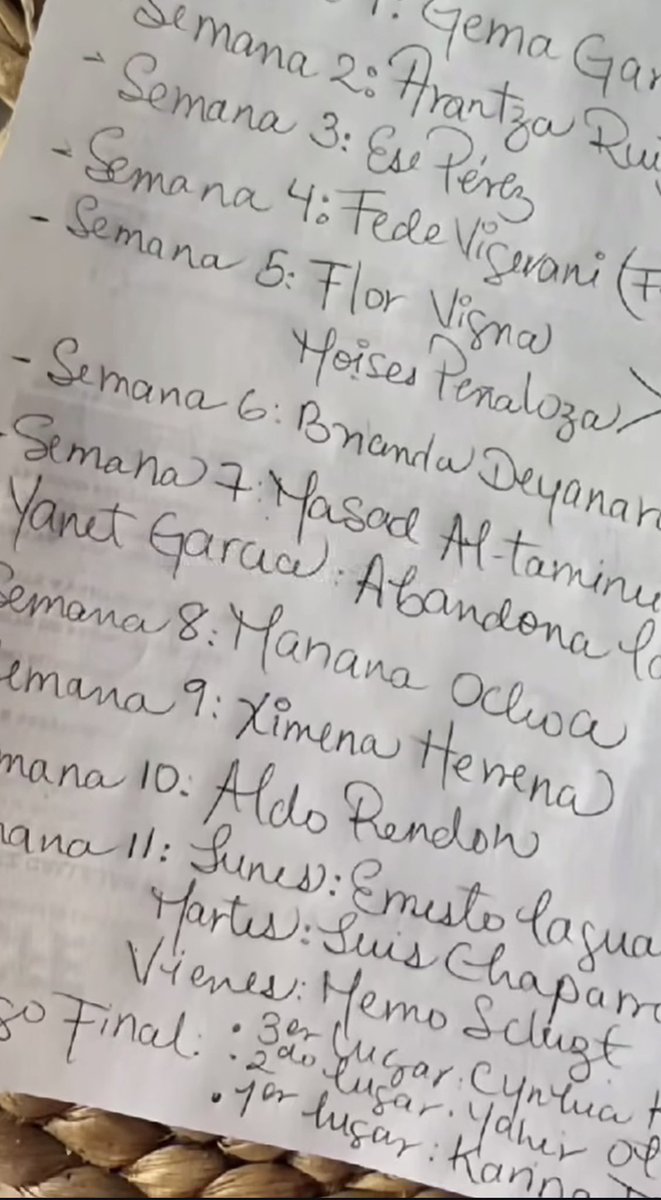 1: Gema Gar
Semana 2: Arantza Rui
- Semana 3: Ese Pérez
- Semana 4: Fede Vigevani (F
- Semana 5: Flor Vigna
Moises Peñaloza
- Semana 6: Brianda Deyanar
- Semana 7: Masad Al-taminu
Yanet Garcia: Abandona la
Semana 8: Mariana Ochoa
emana 9: Ximena Herrera
mana 10: Aldo Rendon
ana 11: Lunes: Ernesto Lagua
Martes: Luis Chaparro
Viernes: Memo Schutz
go Final: • 3er lugar: Cynthia
• 2do lugar: Yahir Ot
• 1er lugar: Karina